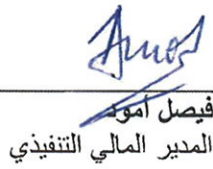 فيصل امود
المدير المالي التنفيذي